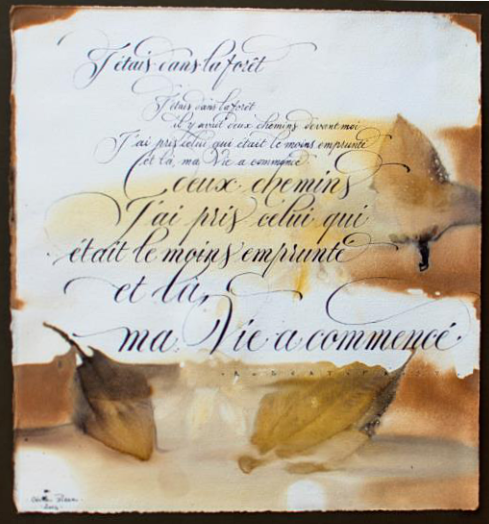 J'étais dans la forêt
J'étais dans la forêt
il y avait deux chemins devant moi
J'ai pris celui qui était le moins emprunté
et là, ma Vie a commencé
deux chemins
J'ai pris celui qui
était le moins emprunté
et là,
ma Vie a commencé